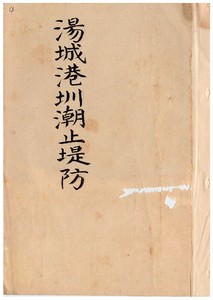 湯城港圳潮止堤防